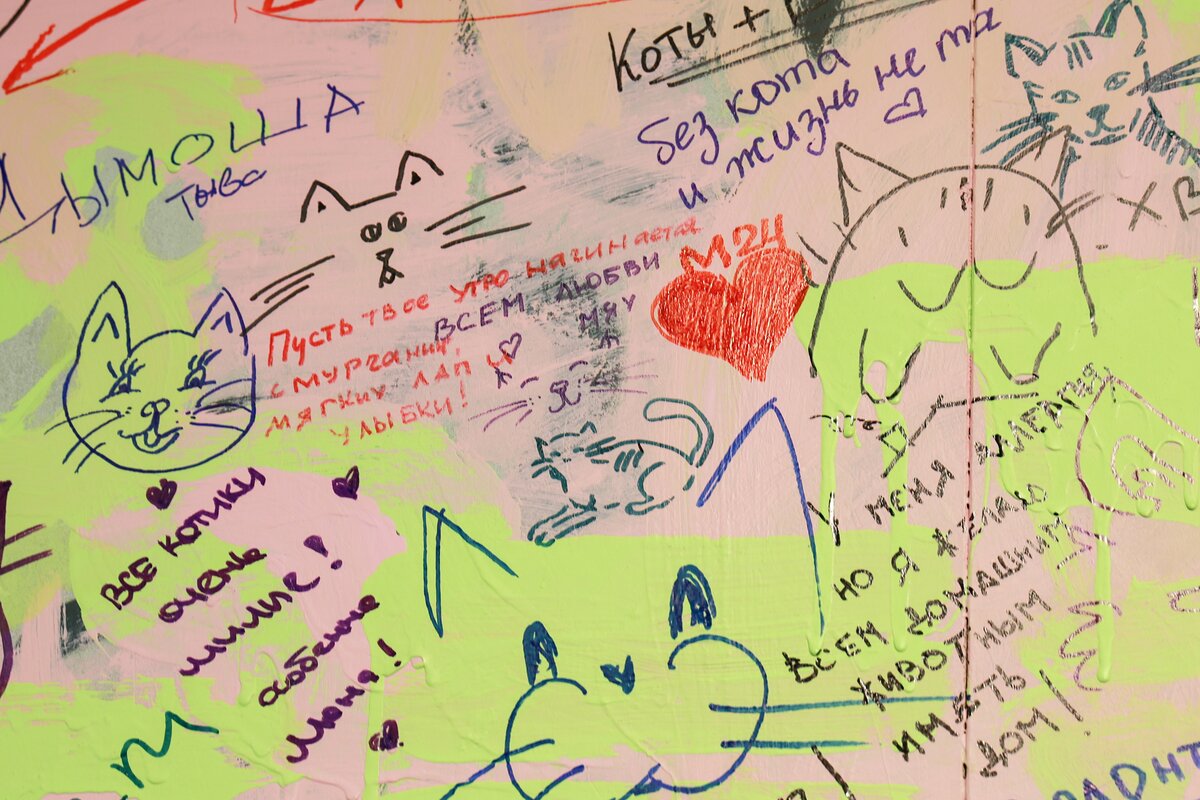 Коты +
без кота
и жизнь не та
ЫМОША
Тыва
М24
Пусть твое утро начинается
с мурчания,
мягких лап и
улыбки!
ВСЕМ ЛЮБВИ
МЯУ
ХВ
ВСЕ котики
очень
милые!
особенно
Моня!
У МЕНЯ АЛЛЕРГИЯ
НО Я ЖЕЛАЮ
ВСЕМ ДОМАШНИМ
ЖИВОТНЫМ
ИМЕТЬ
ДОМ!